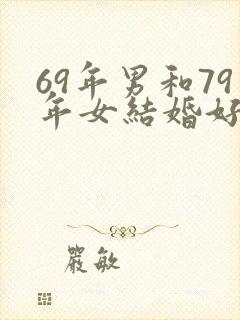 69年男和79
年女結婚好
嚴敏